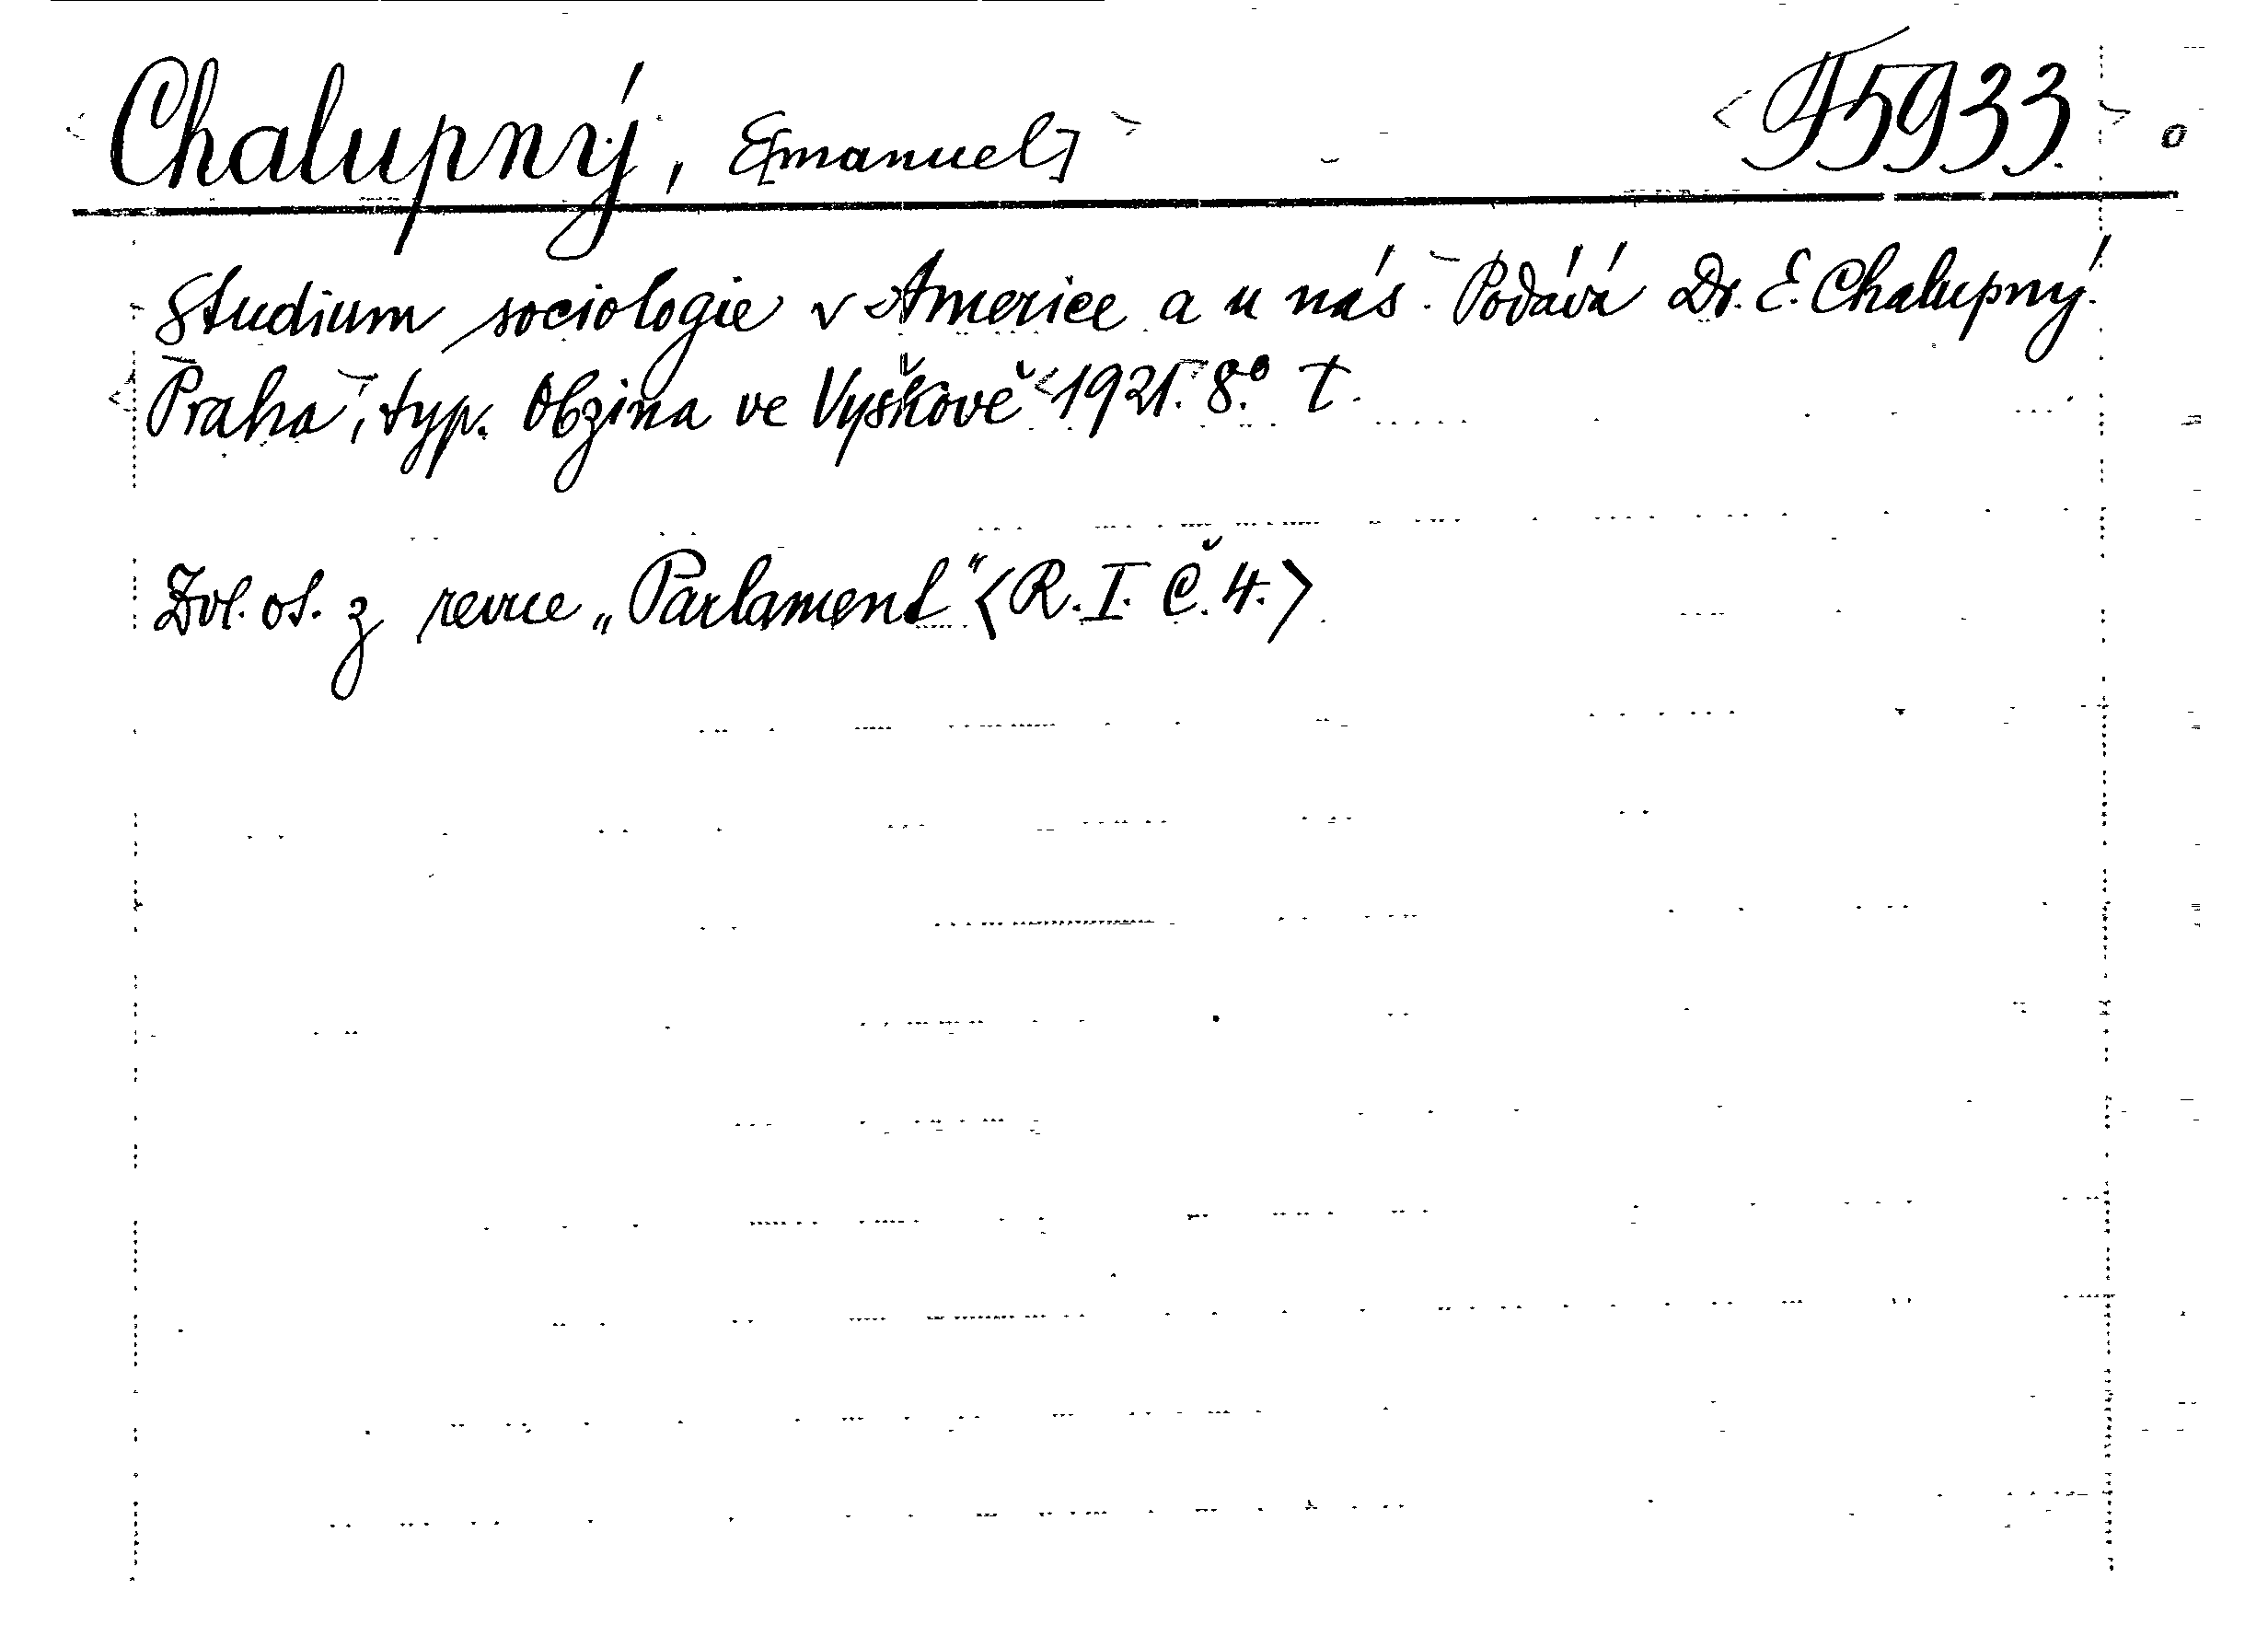 Chalupný, E[manuel] F 5933
Studium sociologie v Americe a u nás. Podává Dr. E. Chalupný.
Praha, typ. Obzina ve Vyškově 1921. 8.° T.
Zvl. ot. z revue „Parlament“ <R. I. Č. 4.>